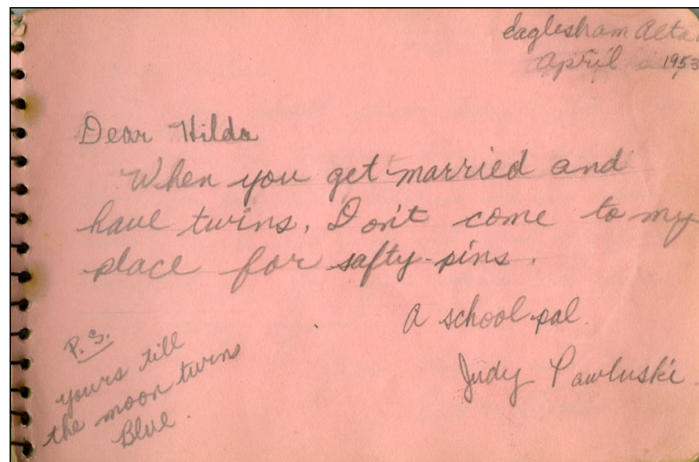 Eaglesham Alta.
April 1953
Dear Hilda
When you get married and
have twins, Don't come to my
place for safty-pins.
A school pal.
Judy Pawluski
P.S.
yours till
the moon turns
Blue.